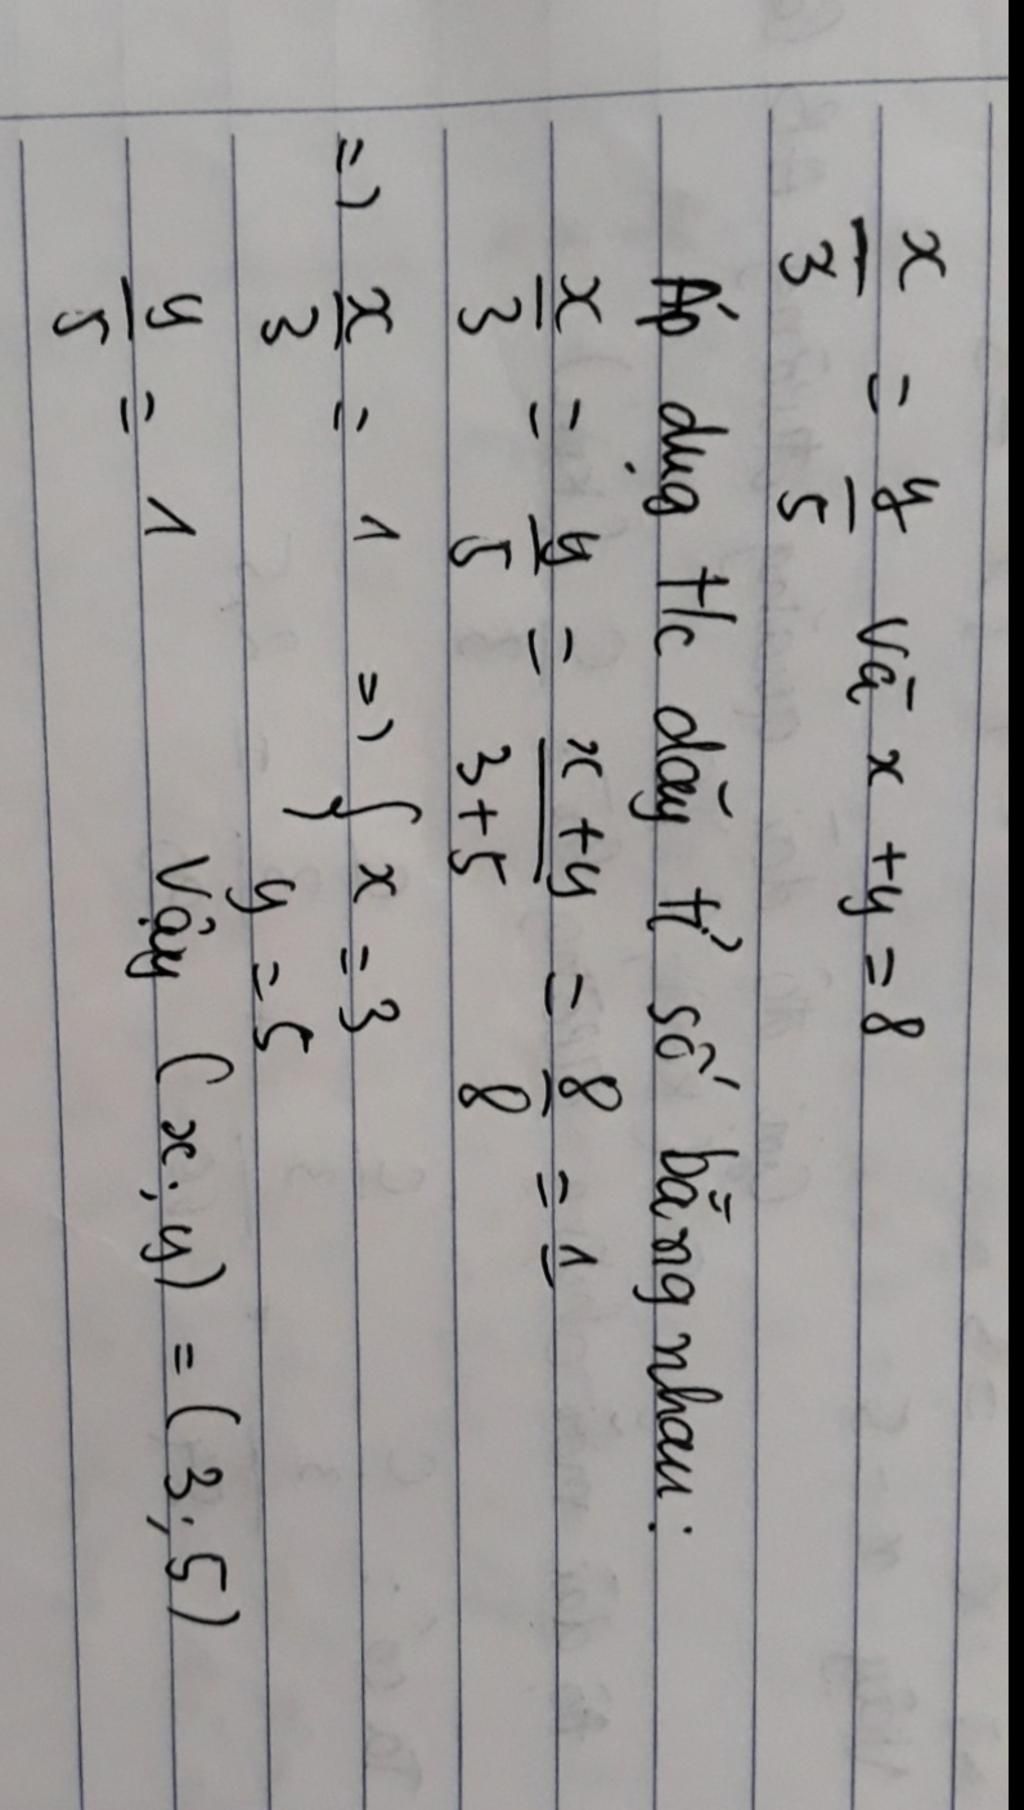 x/3 = y/5 và x + y = 8
Áp dụg t/c dãy tỉ số bằng nhau:
x/3 = y/5 = (x + y)/(3 + 5) = 8/8 = 1
=> x/3 = 1 => { x = 3
y = 5
y/5 = 1
Vậy (x; y) = (3; 5)